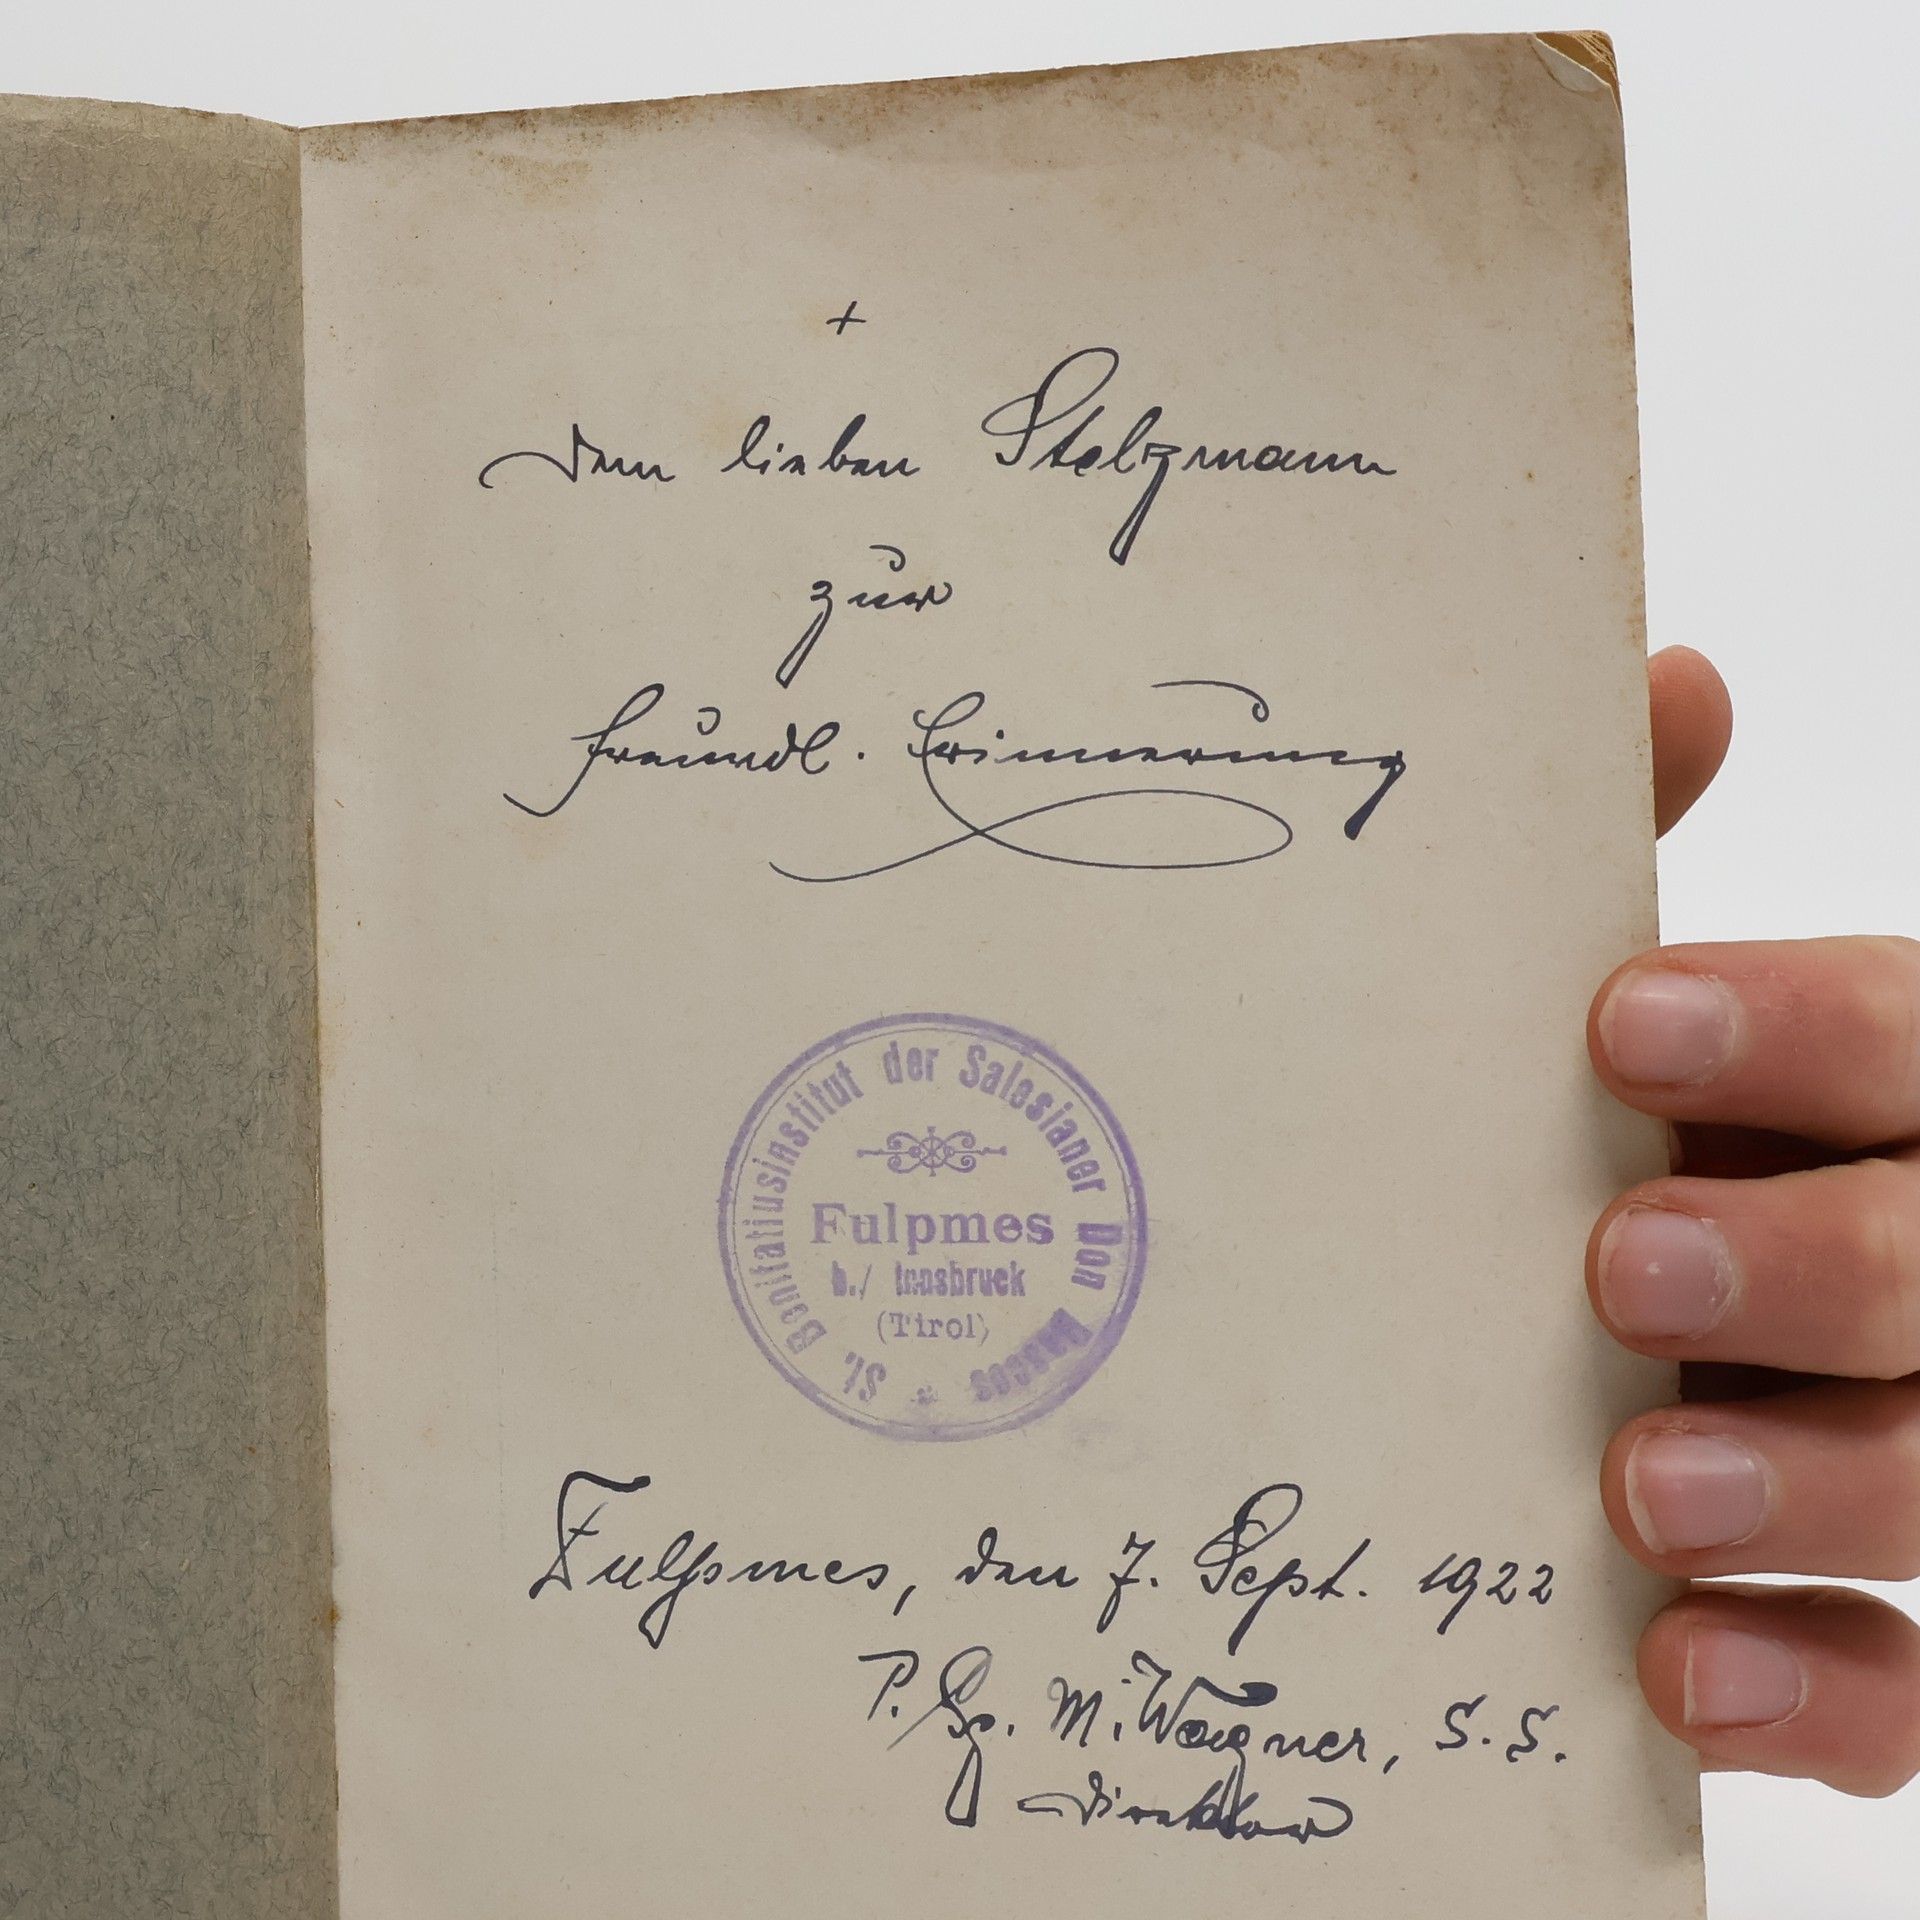 +
Dem lieben Stelzmann
zur
freundl. Erinnerung
St. Bonifatiusinstitut der Salesianer Don Boscos
Fulpmes
b./ Innsbruck
(Tirol)
Fulpmes, den 7. Sept. 1922
P. Gg. M. Wagner, S. S.
Direktor